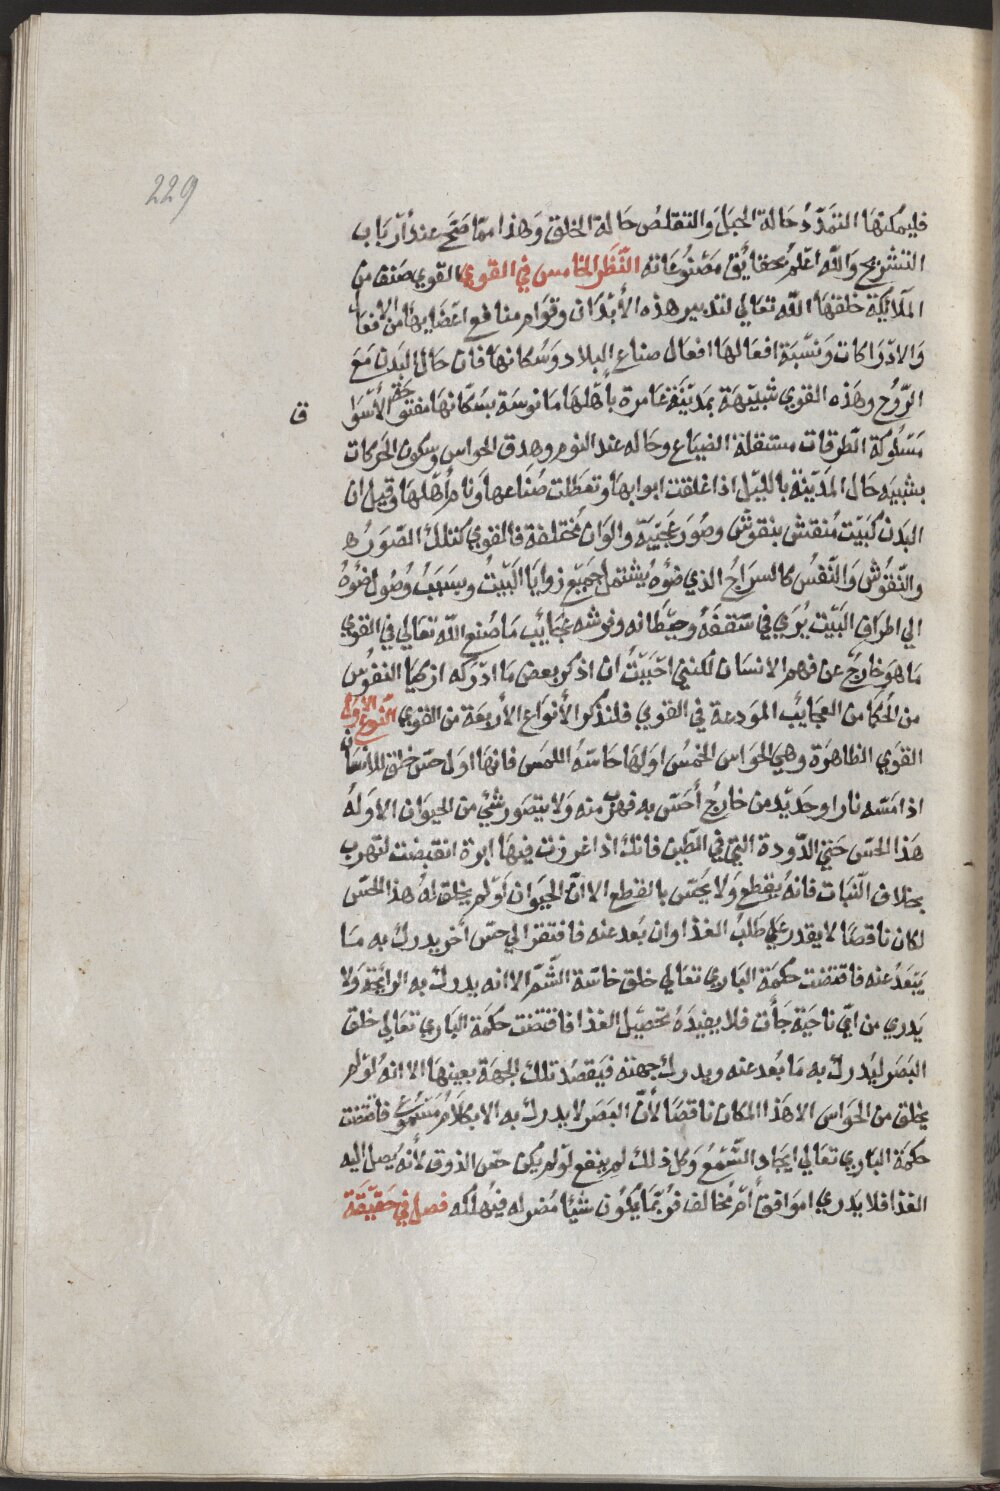 229
فليمكنها التمدّد حالة الحبل والتقلص حالة الخلق وهذا ممّا صحّ عند أرباب
التشريح والله أعلم بحقايق مصنوعاته النّظر الخامس في القوي القوي صنف من
الملآئكة خلقها الله تعالي لتدبير هذه الأبدان وقوام منافع اعضايها من الافعال
والادراكات ونسبة افعالها افعال صناع البلاد وسكانها فان حال البدن مع
الرّوح وهذه القوي شبيهة بمدينة عامرة بأهلها مانوسة بسكانها مفتوحة الأسوا
ق
مسلوكة الطرقات مستقلة الضياع وحاله عند النوم وهدق الحواس وسكون الحركات
بشبيه حال المدينة بالليل اذا غلقت ابوابها وتعطلت صناعها ونام أهلها وقيل ان
البدن كبيت منقش بنقوش وصور عجيبة والوان مختلفة فالقوي كتلك الصّور
والنّقوش والنّفس كالسراج الذي ضؤه يشتمل جميع زوايا البيت وبسبب وصول ضؤه
الي اطراف البيت يري في سقفه وحيطانه وفرشه عجايب ما صنع الله تعالي في القوي
ما هو خارج عن فهم الانسان لكنني احببت أن اذكر بعض ما ادركه ازكيا النفوس
من الحكما من العجايب المودعة في القوي فلنذكر الأنواع الأربعة من القوي النوع الأول
القوي الظاهرة وهي الحواس الخمس اولها حاسّة اللمس فانها اول حسّ خلق للانسان
اذا مسّه نار او حديد من خارج أحسّ به فهرب منه ولا يتصور شيء من الحيوان الا وله
هذا الحسّ حتي الدّودة التي في الطّين فانك اذا غرزت فيها ابرة انقبضت لتهرب
بخلاف النبات فانه يقطع ولا يحسّ بالقطع الا انّ الحيوان لو لم يخلق له هذا الحسّ
لكان ناقصا لا يقدر علي طلب الغذا وان بعد عنه فافتقر الي حس أخر يدرك به ما
يبعد عنه فاقتضت حكمة الباري تعالي خلق حاسّة الشّم الا انه يدرك به الرائحة ولا
يدري من ايّ ناحية جأت فلا يفيده تحصيل الغذا فاقتضت حكمة الباري تعالي خلق
البصر ليدرك به ما بعد عنه ويدرك جهته فيقصد تلك الجهة بعينها الا انه لو لم
يخلق من الحواس الا هذا المكان ناقصا لأنّ البصر لا يدرك به الا بكلام مسموع فاقتضت
حكمة الباري تعالي ايجاد السّمع وكل ذلك لم ينفع لو لم يكن حسّ الذوق لأنه يصل اليه
الغذا فلا يدري اموافق أم مخالف فربّما يكون شيئا مضر له فيهلكه فصل في حقيقة